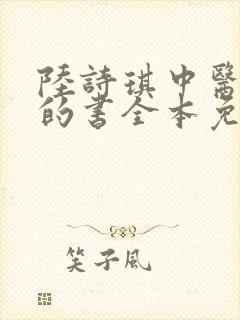 陸詩琪中醫
的書全本免
笑子風